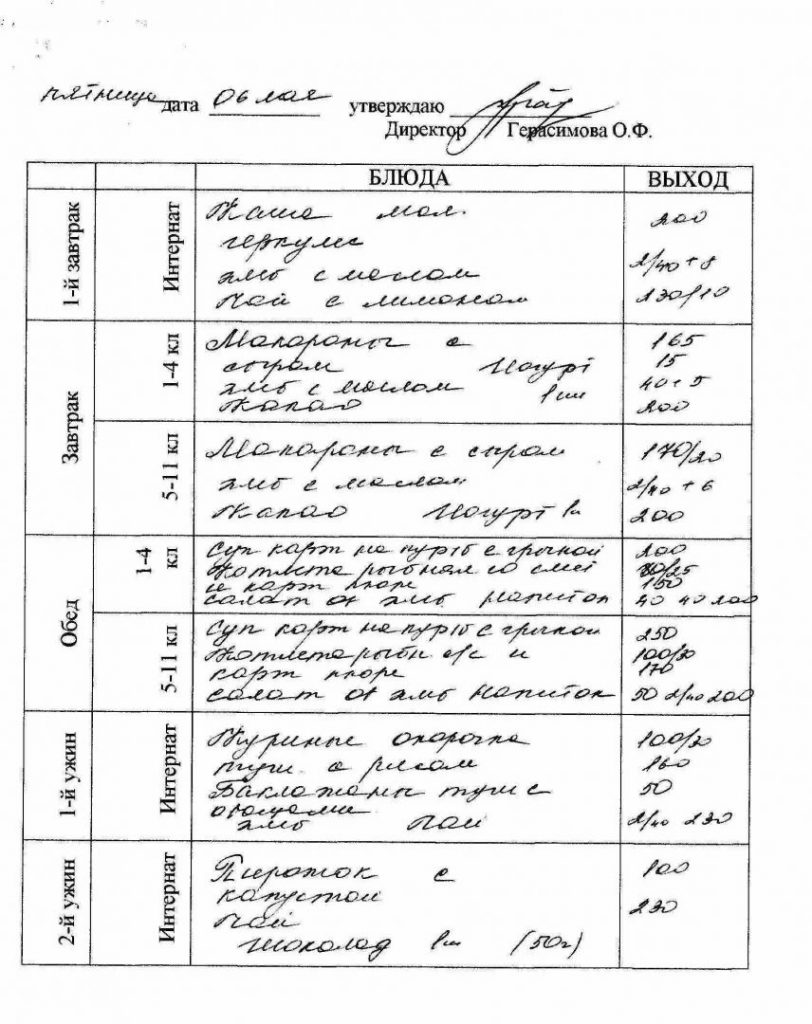 пятница дата 06 мая утверждаю
Директор Герасимова О.Ф.
БЛЮДА ВЫХОД
1-й завтрак Интернат
Каша мол. 200
геркулес
хлеб с маслом 2/40 + 8
Чай с лимоном 230/10
Завтрак
1-4 кл
Макароны с 165
сыром Йогурт 15
хлеб с маслом 1 шт 40+5
Какао 200
5-11 кл
Макароны с сыром 170/20
хлеб с маслом 2/40 + 6
Какао Йогурт 1ш 200
Обед
1-4 кл
Суп карт на кур/б с гречкой 200
Котлета рыбная со смет 80/25
и карт пюре 150
салат ов хлеб напиток 40 40 200
5-11 кл
Суп карт на кур/б с гречкой 250
Котлета рыбн с/с и 100/30
карт пюре 170
салат ов хлеб напиток 50 2/40 200
1-й ужин Интернат
Куриные окорочка 100/30
туш. с рисом 160
Баклажаны туш с 50
овощами
хлеб Чай 2/40 230
2-й ужин Интернат
Пирожок с 100
капустой
Чай 230
Шоколад 1 шт (50г)